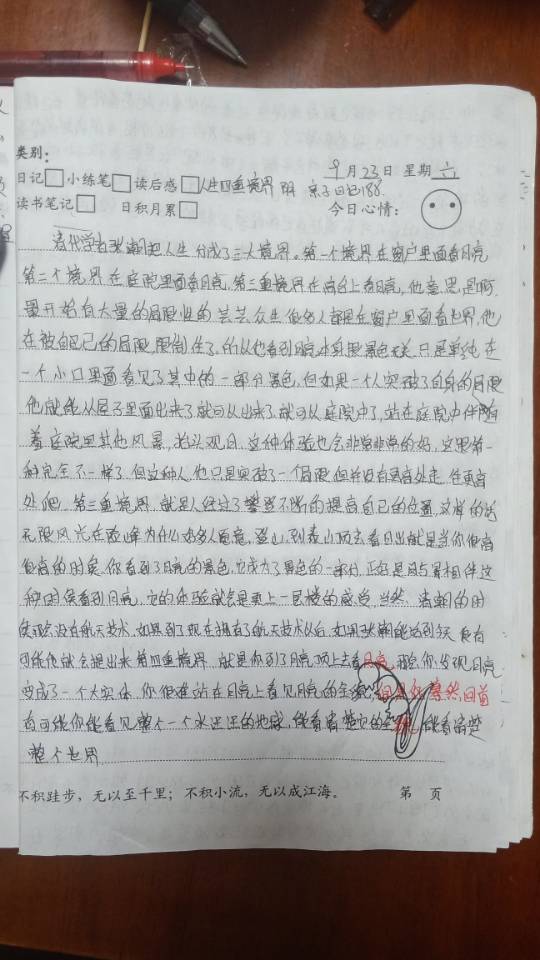 类别：
9月23日 星期六
日记 小练笔 读后感 人生四重境界 亲子日记188
读书笔记 日积月累 今日心情：
清代学者张潮把人生分成了三大境界，第一个境界在窗户里面看月亮
第二个境界在庭院里面看月亮，第三重境界在高台上看月亮，他意思是啊
最开始有大量的局限性的芸芸众生很多人都是在窗户里面看世界，他
在被自己的局限限制住了，所以他看到月亮本身跟景色无关，只是单纯在
一个小口里面看见了其中的一部分景色，但如果一个人突破了自身的局限
他就能从屋子里面出来了就可以出来了就可以庭院中了，站在庭院中伴随
着庭院里其他风景，抬头观月，这种体验也会非常非常的好，这跟第一
种完全不一样了，但这种人，他只是突破了一个局限但并没有更高处走，往更高
处爬，第三重境界，就是人经过了攀登不断的提高自己的位置，这样的话
无限风光在险峰为什么好多人愿意，登山，到泰山顶去看日出就是当你很高
很高的时候，你看到了月亮的景色，它成为了景色的一部分，正好是月与景相伴这
种时候看到月亮，它的体验就会是更上一层楼的感受，当然，张潮的时
候现在没有航天技术，如果到了现在拥有了航天技术以后，如果张潮能达到今天，良有
可能他就会提出来第四重境界，就是你到了月亮顶上去看月亮，那么你发现月亮
变成了一个大实体，你很难站在月亮上看见月亮的全貌，但是你蓦然回首
有可能你能看见整个一个水里里的地球，能看清楚它的全貌，能看清楚
整个世界
不积跬步，无以至千里；不积小流，无以成江海。 第 页